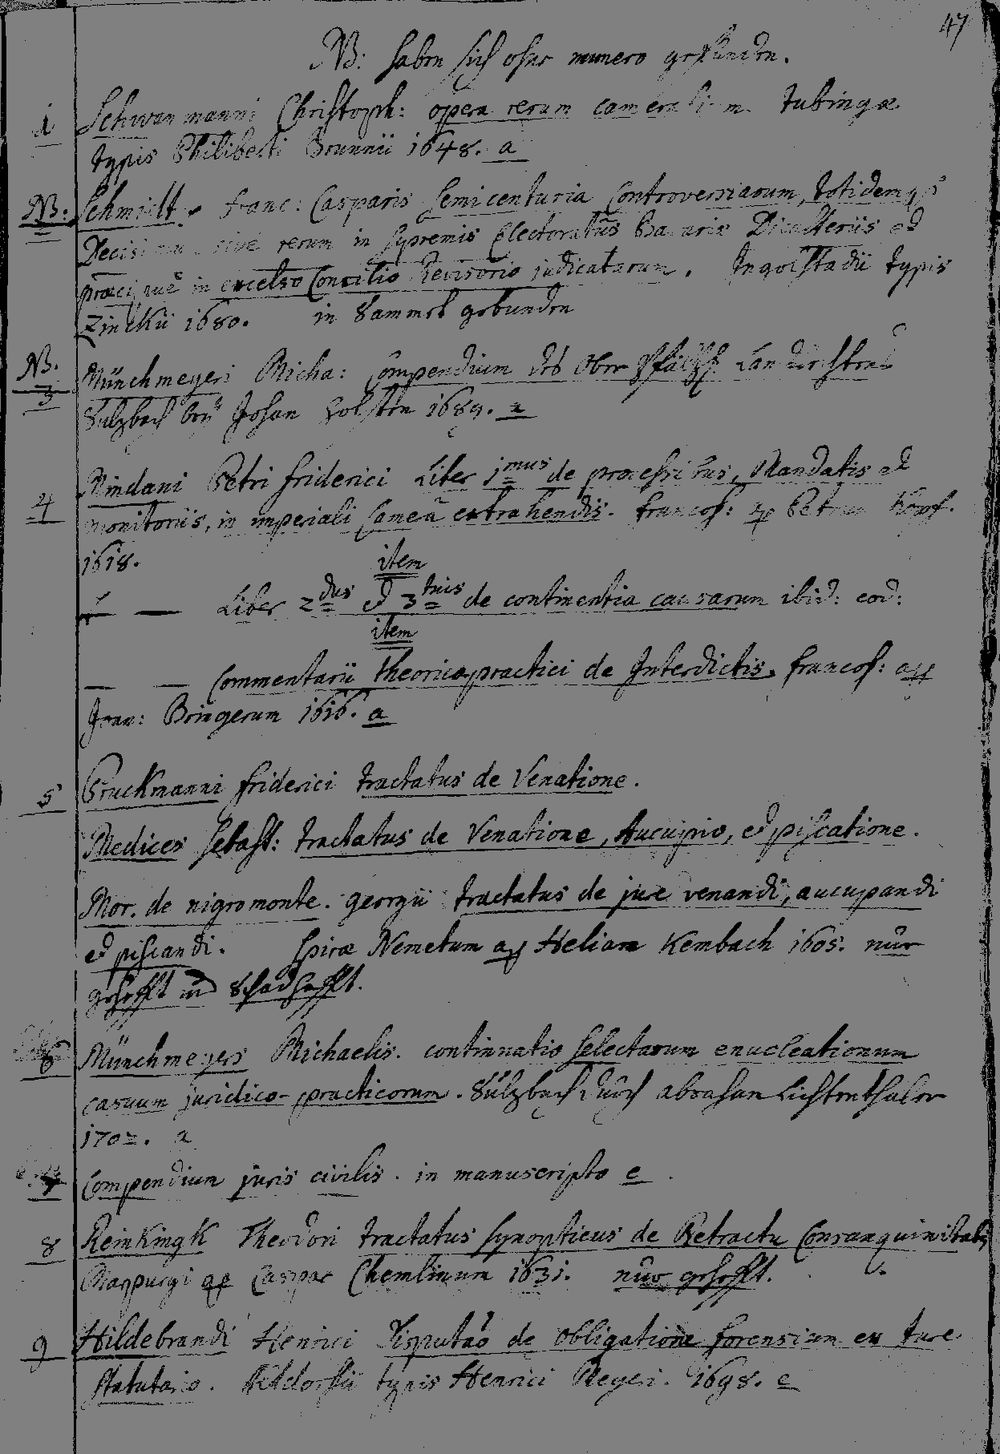 47
NB: haben sich ohne numero gefunden.
1 Schwanmanni Christoph: opera rerum cameralium Tubingæ
typis Philiberti Brunnii 1648. a
NB: Schmidt Franc: Casparis Semicenturia Controversiarum, totidemq3
Decisionum sive rerum in supremis Electoratus Bavariæ Dicasteriis et
præcipuè in excelso Concilio Revisorio judicatarum. Ingolstadii typis
Zinckii 1680. in Sammet gebunden
NB. 3 Münchmeyeri Micha: Compendium des Ober Pfältz: Landrechtens
Sulzbach bey Johan Holsten 1689. a
4 Rindani Petri Friderici Liber 1mus de processibus, Mandatis et
monitoriis, in imperiali Camerâ extrahendis. Francof: per Petrum Kopf.
1618.
item
Liber 2dus et 3tius de continentia causarum ibid: eod:
item
Commentarii theorico practici de Interdictis. Francof: app
Joan: Bringerum 1616. a
5 Pruckmanni Friderici tractatus de Venatione.
Medices Sebast: tractatus de Venatione, Aucupio, et piscatione.
Mor. de nigromonte. georgii tractatus de jure venandi, aucupandi
et piscandi. Spiræ Nemetum ap Heliam Kembach 1605. nur
gehefft und schadhafft.
6 Münchmeyers Michaelis. continuatio selectarum enucleationum
casuum juridico-practicorum. Sulzbach durch abraham Lichtenthaler
1702. a
7 Compendium juris civilis. in manuscripto e
8 Reinkingk Theodori tractatus synopticus de Retractu Consanguinitatis
Marpurgi ap Caspar Chemlinum 1631. nur gehefft.
9 Hildebrandi Henrici Disputatio de obligatione forensium ex jure
statutario. Altdorffii typis Henrici Meyeri. 1698. e